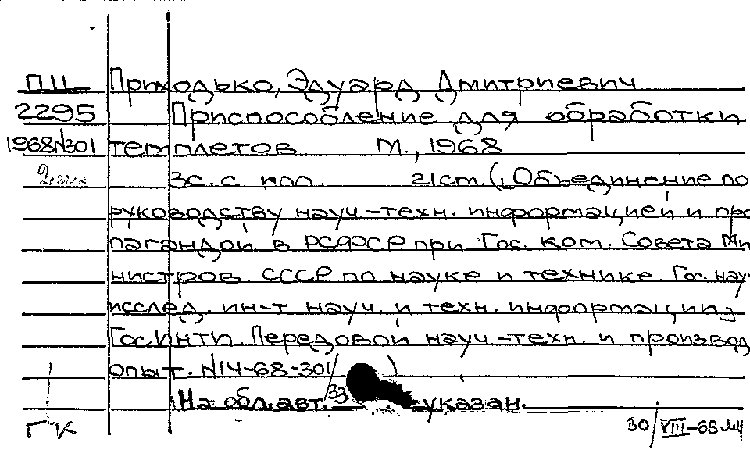 ПЦ Приходько, Эдуард Дмитриевич
2295 Приспособление для обработки
1968№301 темплетов М., 1968
3с. с илл. 21см. (Объединение по
руководству науч.-техн. информацией и про
пагандой в РСФСР при Гос. ком. Совета Ми
нистров СССР по науке и технике. Гос. науч
исслед. ин-т науч. и техн. информации
ГосИНТИ. Передовой науч.-техн. и производ
опыт. №14-68-301/33)
На обл. авт. указан.
ГК 30/VIII-68